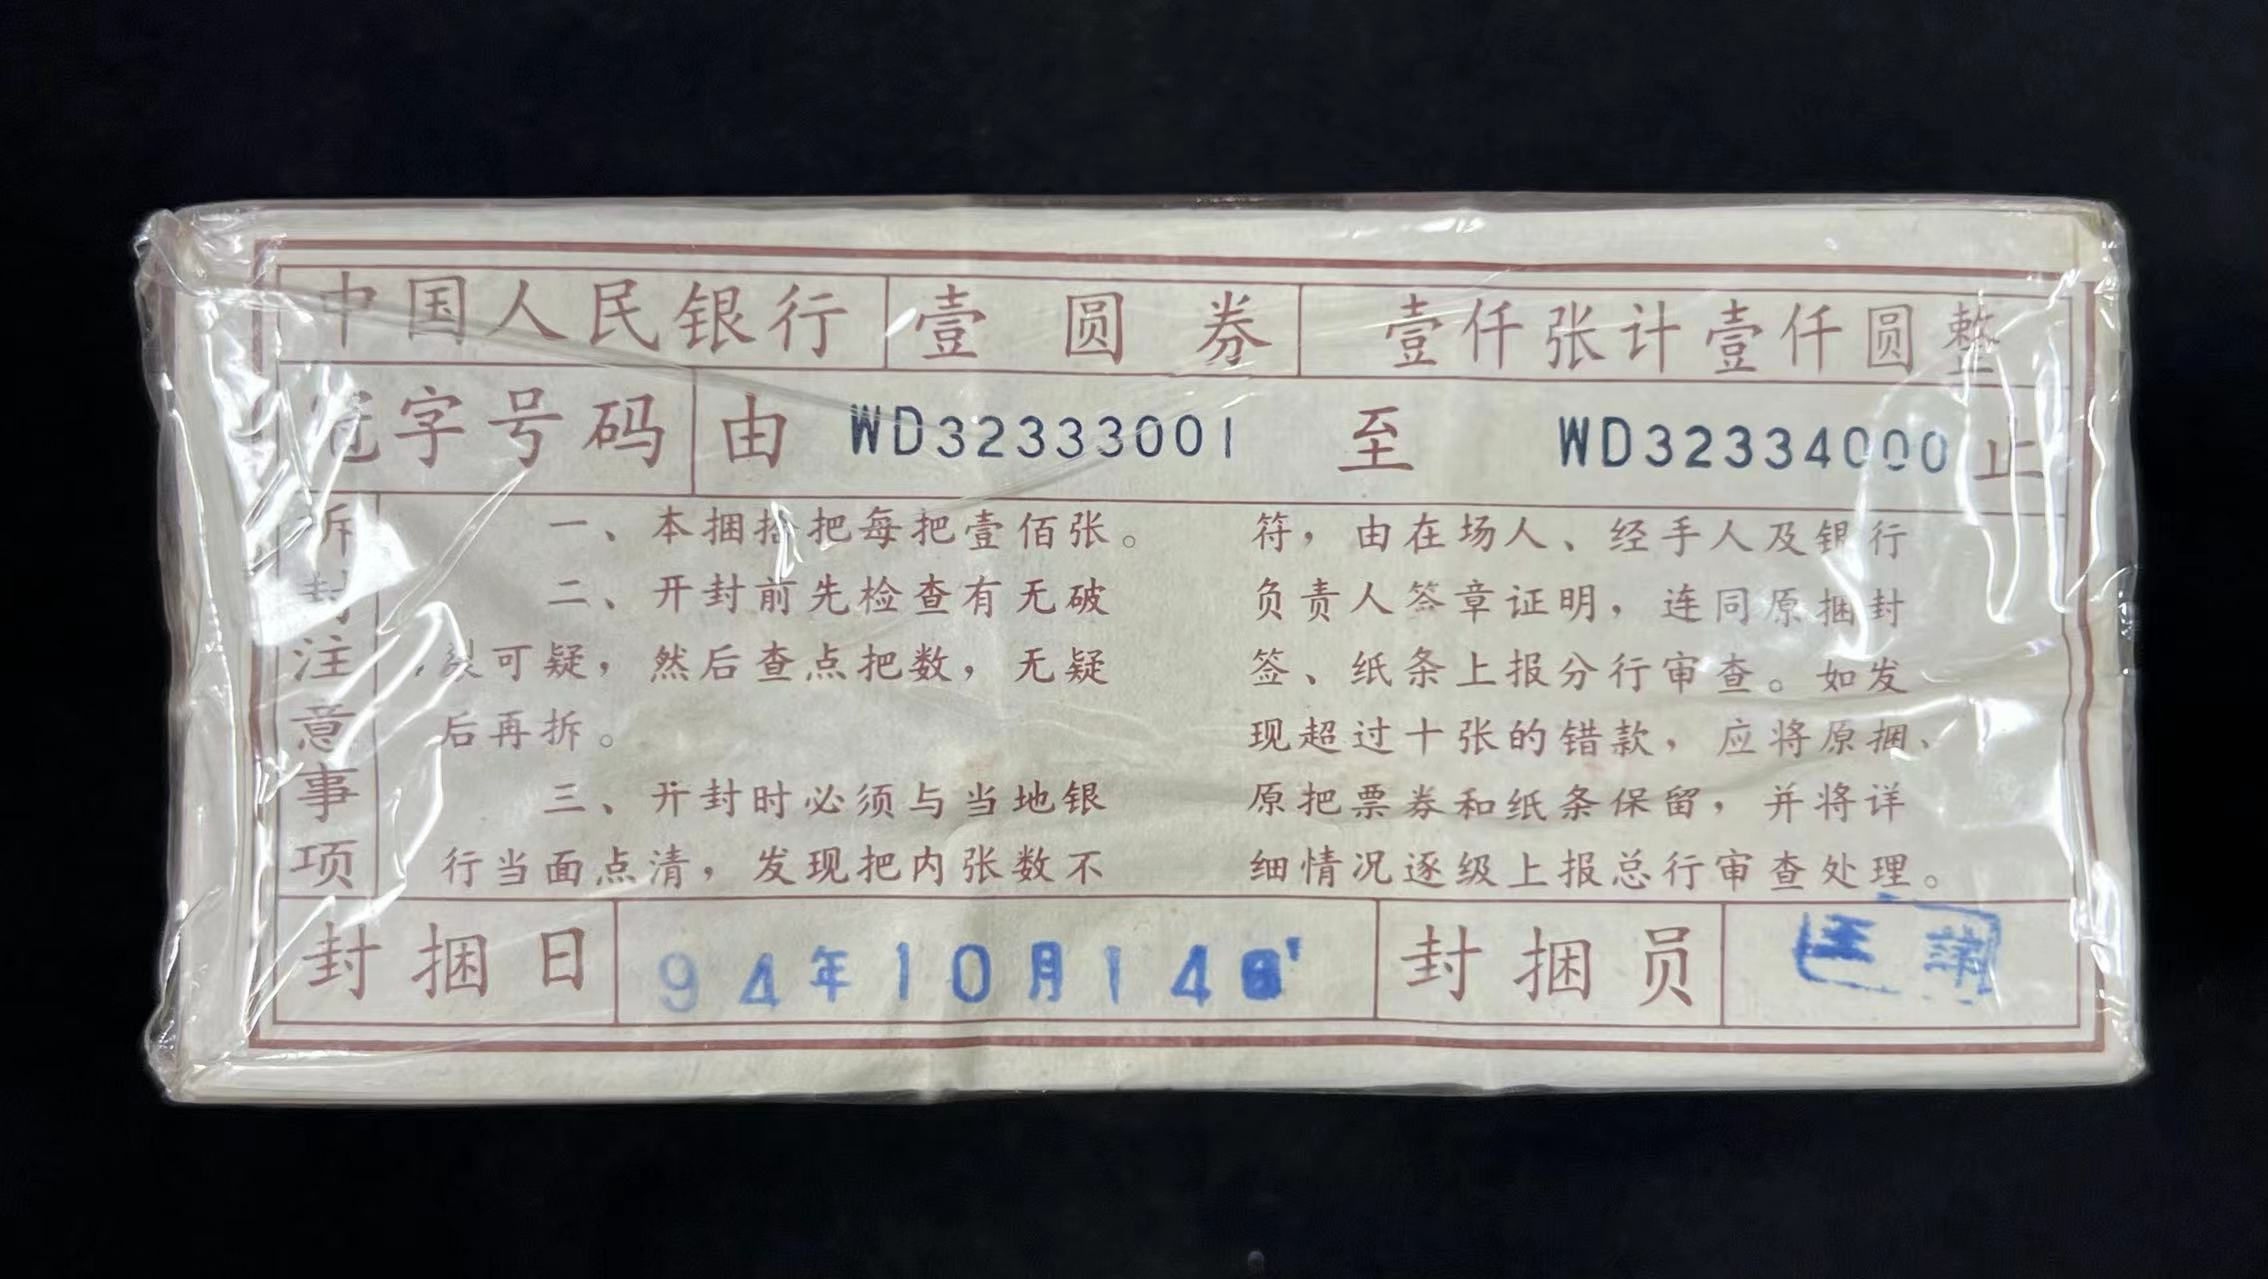 中国人民银行 壹圆券 壹仟张计壹仟圆整
冠字号码 由 WD32333001 至 WD32334000 止
拆封注意事项
一、本捆拾把每把壹佰张。
二、开封前先检查有无破
裂可疑，然后查点把数，无疑
后再拆。
三、开封时必须与当地银
行当面点清，发现把内张数不
符，由在场人、经手人及银行
负责人签章证明，连同原捆封
签、纸条上报分行审查。如发
现超过十张的错款，应将原捆、
原把票券和纸条保留，并将详
细情况逐级上报总行审查处理。
封捆日 94年10月14日 封捆员 王